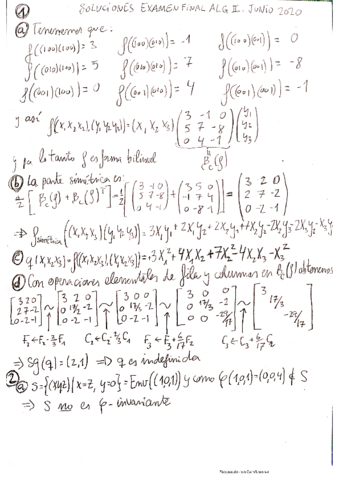 SOLUCIONES EXAMEN FINAL ALG II. JUNIO 2020
1
a) Tenemos que:
f((100)(100)) = 3 f((100)(010)) = -1 f((100)(001)) = 0
f((010)(100)) = 5 f((010)(010)) = 7 f((010)(001)) = -8
f((001)(100)) = 0 f((001)(010)) = 4 f((001)(001)) = -1
y así f((x₁x₂x₃),(y₁y₂y₃)) = (x₁ x₂ x₃) (3 -1 0 / 5 7 -8 / 0 4 -1) (y₁ / y₂ / y₃)
y por lo tanto f es forma bilineal
b) La parte simétrica es:
1/2 [ + ] = 1/2 [(3 -1 0 / 5 7 -8 / 0 4 -1) + (3 5 0 / -1 7 4 / 0 -8 -1)] = (3 2 0 / 2 7 -2 / 0 -2 -1)
⇒ f simétrica ((x₁x₂x₃)(y₁y₂y₃)) = 3x₁y₁ + 2x₁y₂ + 2x₂y₁ + 7x₂y₂ - 2x₂y₃ - 2x₃y₂ - x₃y₃
c) q(x₁x₂x₃) = f((x₁x₂x₃)(x₁x₂x₃)) = 3x₁² + 4x₁x₂ + 7x₂² - 4x₂x₃ - x₃²
d) Con operaciones elementales de fila y columnas en obtenemos
(3 2 0 / 2 7 -2 / 0 -2 -1) ~ (3 2 0 / 0 17/3 -2 / 0 -2 -1) ~ (3 0 0 / 0 17/3 -2 / 0 -2 -1) ~ (3 0 0 / 0 17/3 -2 / 0 0 -29/17) ~ (3 / 17/3 / -29/17)
F₂←F₂-2/3F₁ C₂←C₂-2/3C₁ F₃←F₃+6/17F₂ C₃←C₃+6/17C₂
⇒ Sg(q) = (2,1) ⇒ q es indefinida
2
a) S = {(xyz) | x=z, y=0} = Env{(1,0,1)} y como φ(1,0,1) = (0,0,4) ∉ S
⇒ S no es φ-invariante